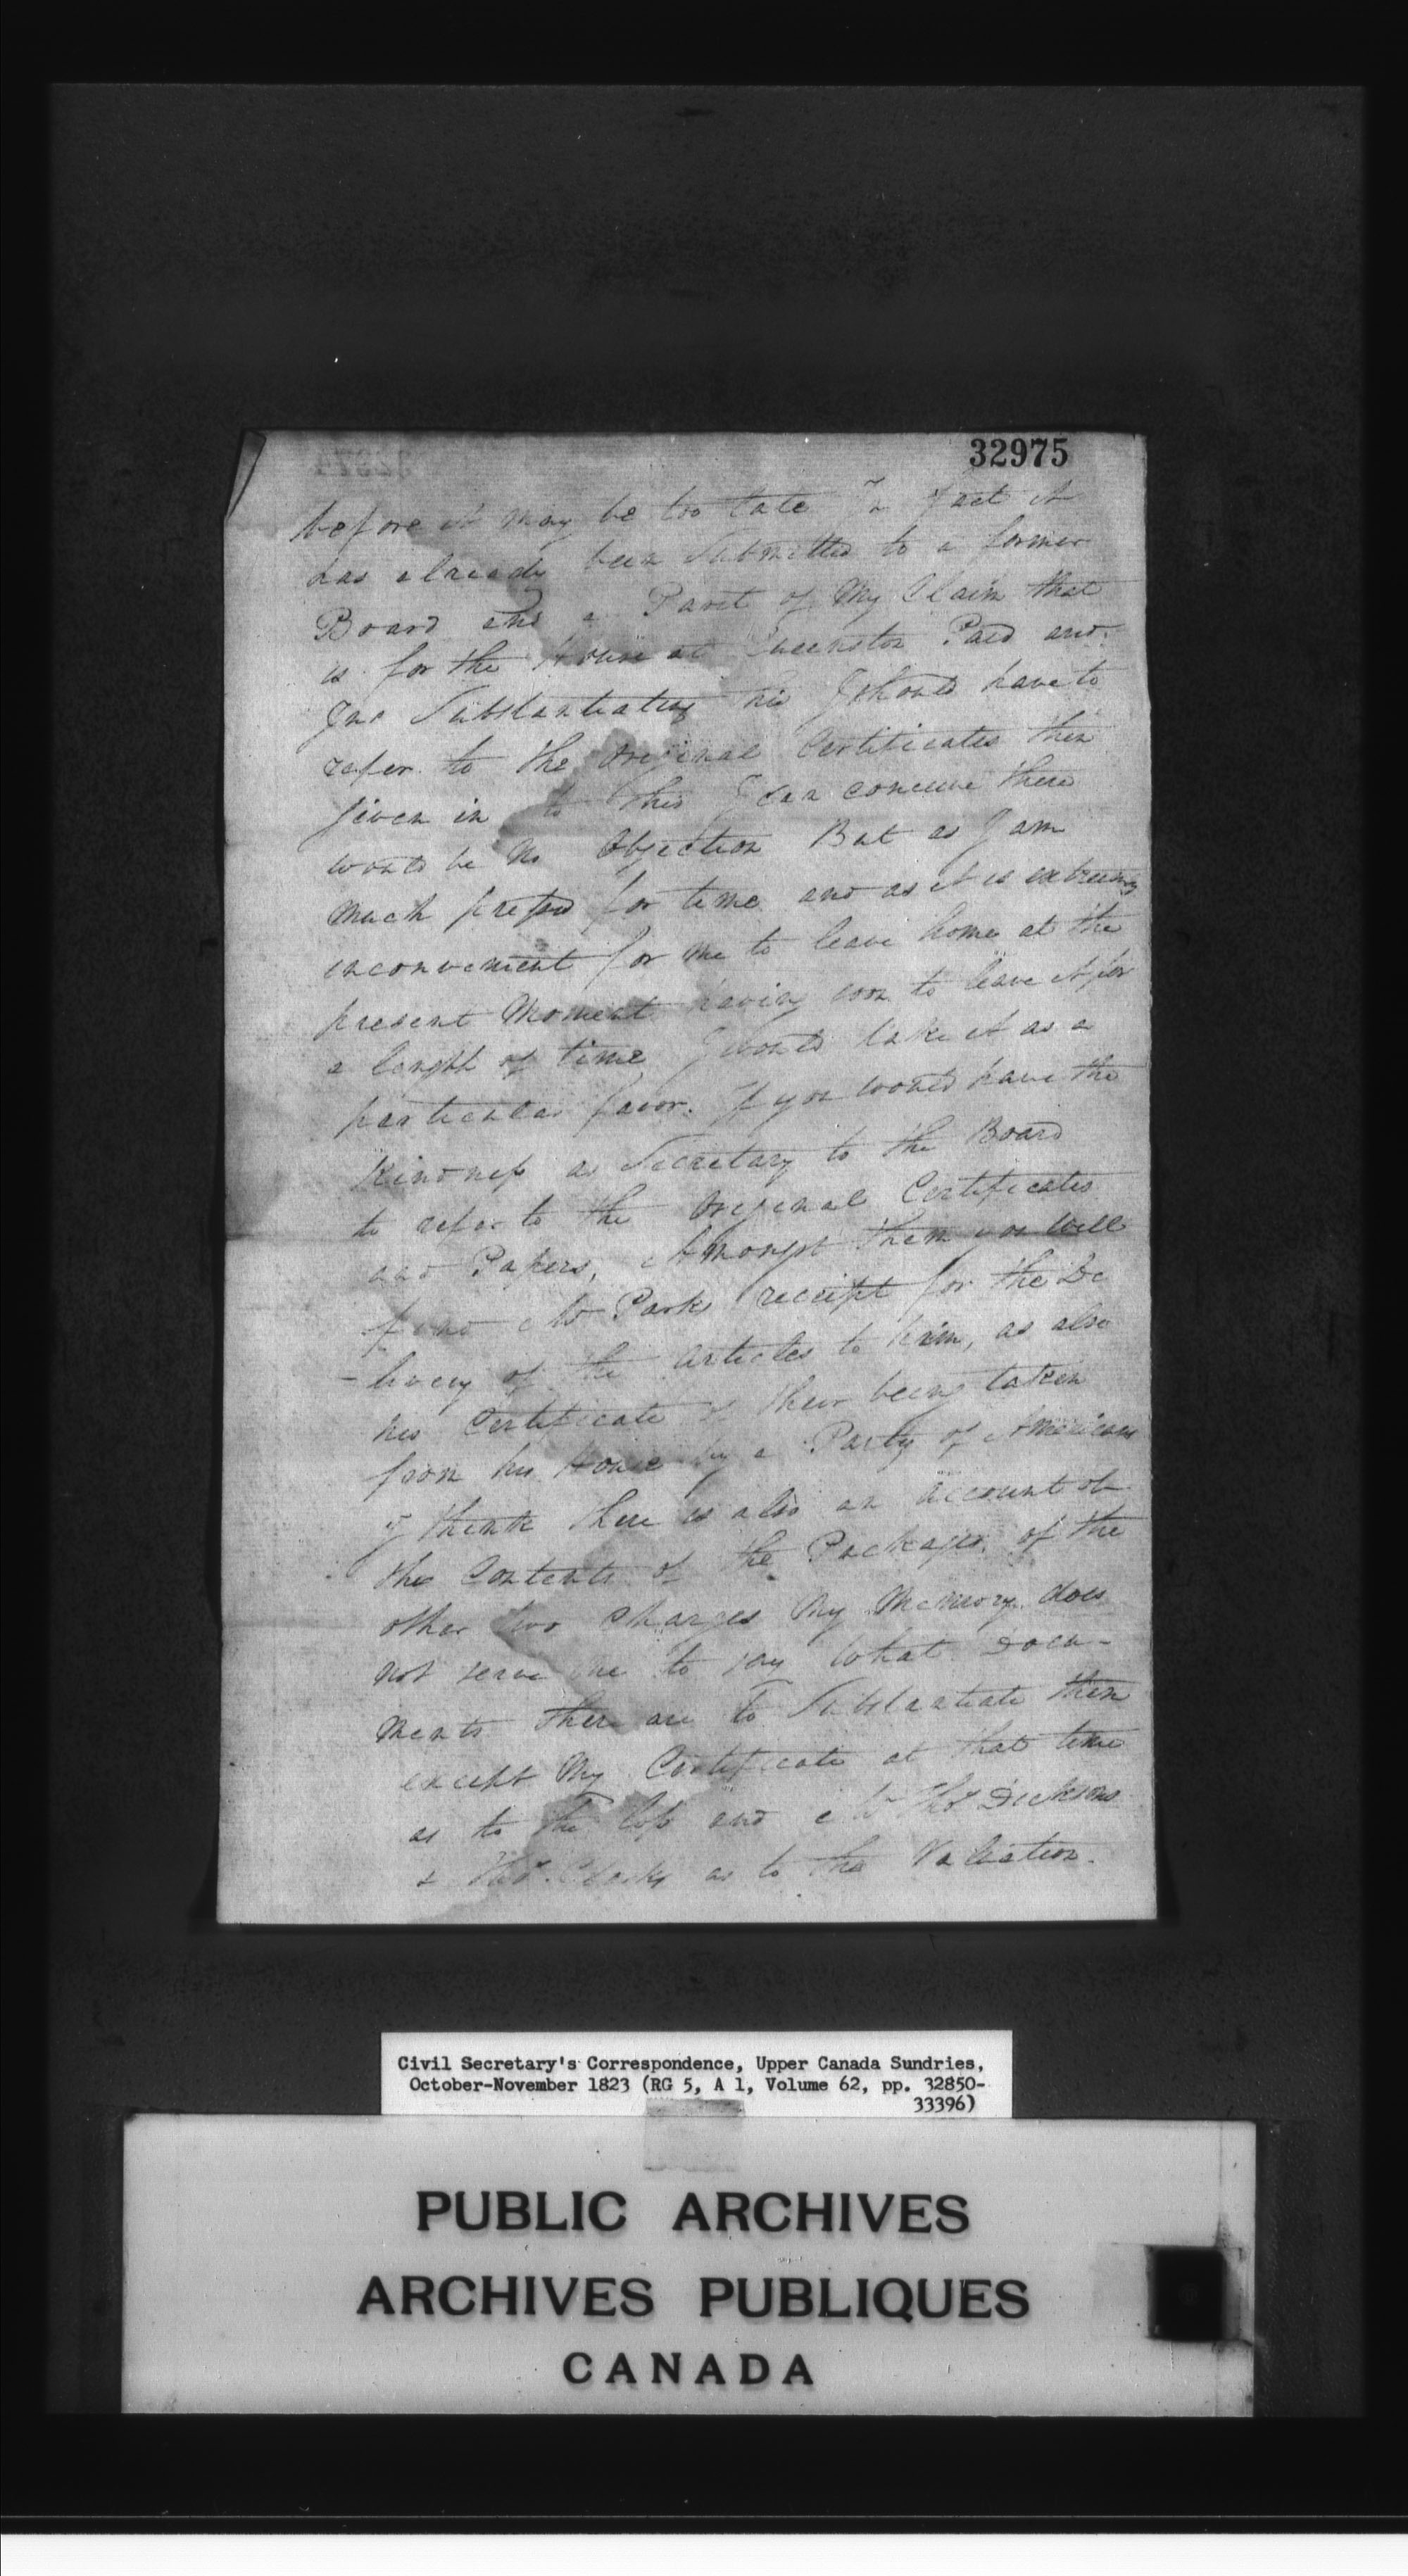 32975
before it may be too late In fact it
has already been Submitted to a former
Board and a Part of My Claim that
is for the House at Queenston Paid and
In Substantiating this I should have to
refer to the Original Certificates then
given in to this I can conceive there
would be No Objection But as I am
much pressed for time and as it is extreemly
inconvenient for me to leave home at the
present Moment having soon to leave it for
a length of time I would take it as a
particular favor if you would have the
Kindness as Secretary to the Board
to refer to the Original Certificates
and Papers, Amongst them you Will
find Mr Parks receipt for the De
-livery of the Articles to him, as also
his Certificate of their being taken
from his House by a Party of Americans
I think there is also an account of
the Contents of the Packages. of the
other two charges My Memory does
not serve me to say What Docu-
ments there are to Substantiate them
except My Certificate at that time
as to the loss and Mr Thos Dicksons
& Thos. Clarks as to the Valuation.
Civil Secretary's Correspondence, Upper Canada Sundries,
October-November 1823 (RG 5, A 1, Volume 62, pp. 32850-
33396)
PUBLIC ARCHIVES
ARCHIVES PUBLIQUES
CANADA